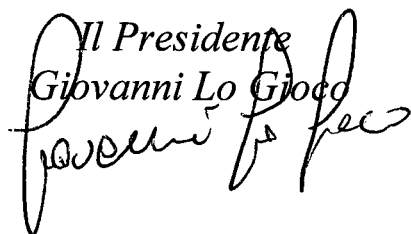 Il Presidente
Giovanni Lo Gioco
Giovanni Lo Gioco